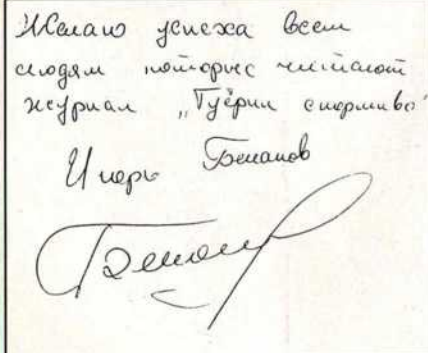 Желаю успеха всем
людям которые читают
журнал „Гуёрин спортиво"
Игорь Беланов